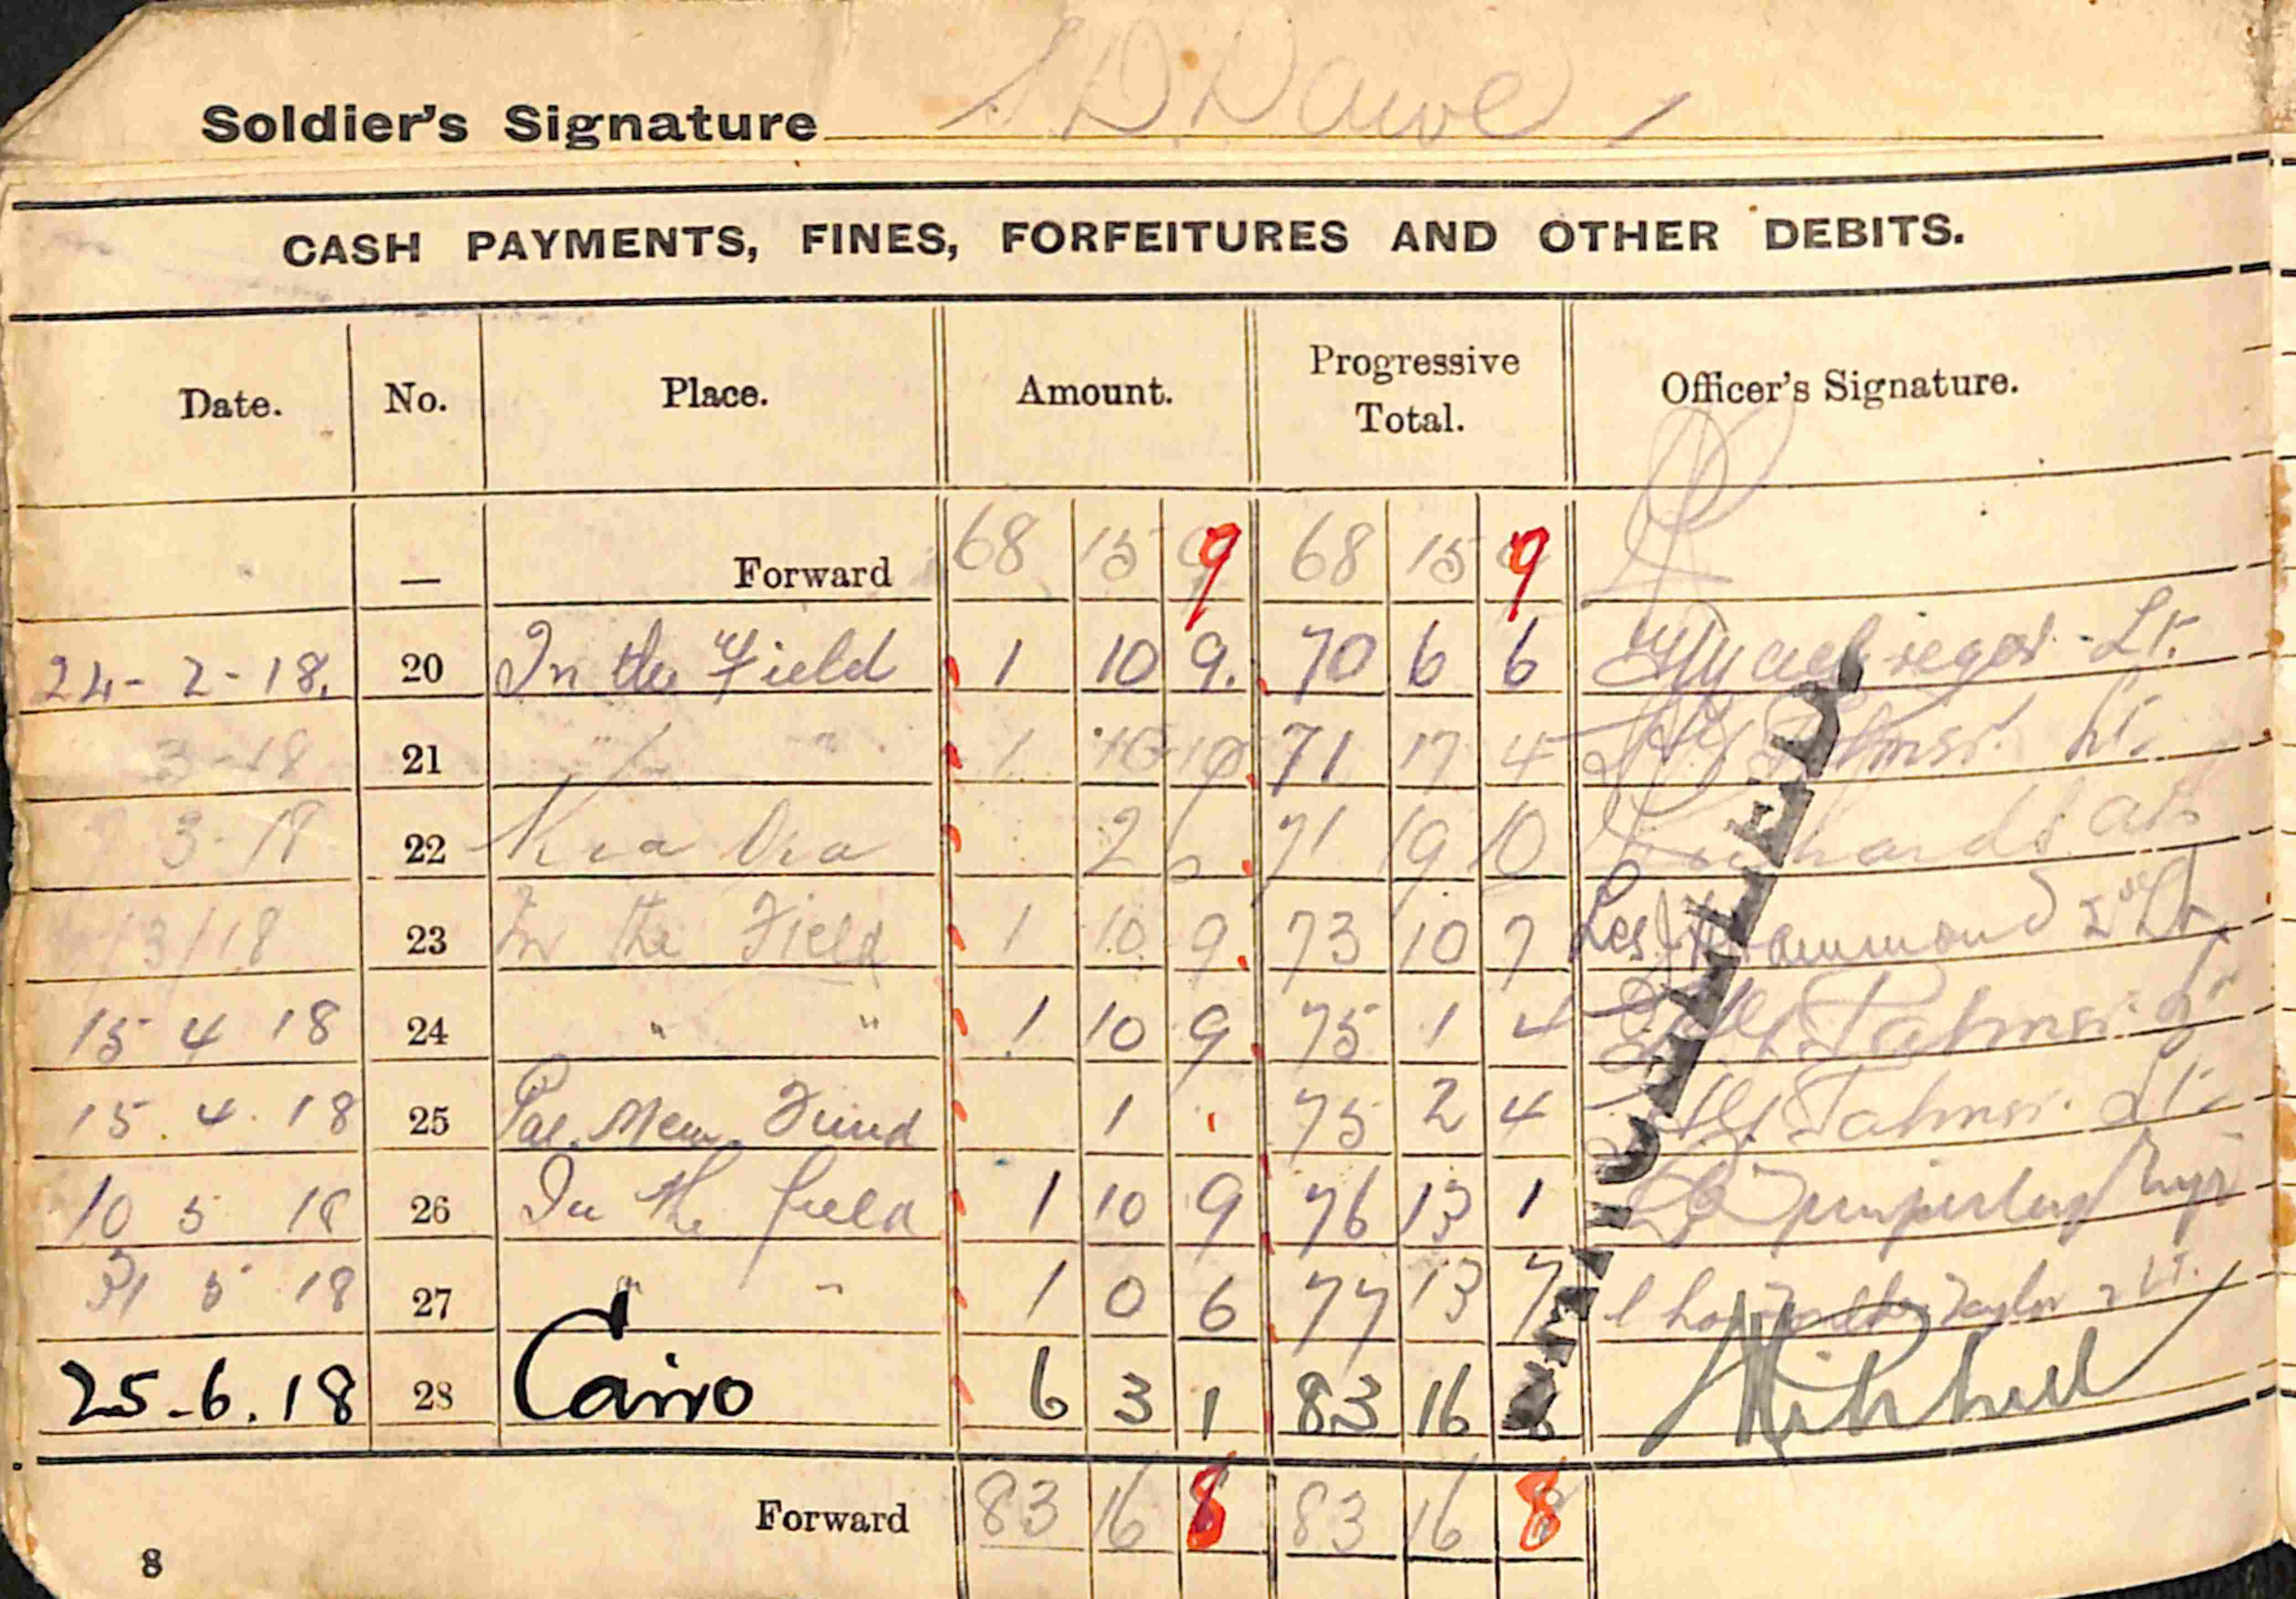 Soldier's Signature S D Dawe
CASH PAYMENTS, FINES, FORFEITURES AND OTHER DEBITS.
Date. No. Place. Amount. Progressive Total. Officer's Signature.
— Forward 68 15 9 68 15 9
24-2-18. 20 In the Field 1 10 9. 70 6 6 Lt.
3-18 21 " " 1 10 10 71 17 4 Lt.
3-18 22 Kia Ora 2 6 71 19 10
/3/18 23 In the Field 1 10 9 73 10 7 Les Hammond 2nd Lt.
15 4 18 24 " " 1 10 9 75 1 4
15.4.18 25 Pal. Mem. Fund 1 75 2 4 Lt.
10 5 18 26 In the field 1 10 9 76 13 1
31 5 18 27 " " 1 0 6 77 13 7 Taylor 2 Lt.
25.6.18 28 Cairo 6 3 1 83 16 8 Mitchell
CANCELLED
Forward 83 16 8 83 16 8
8